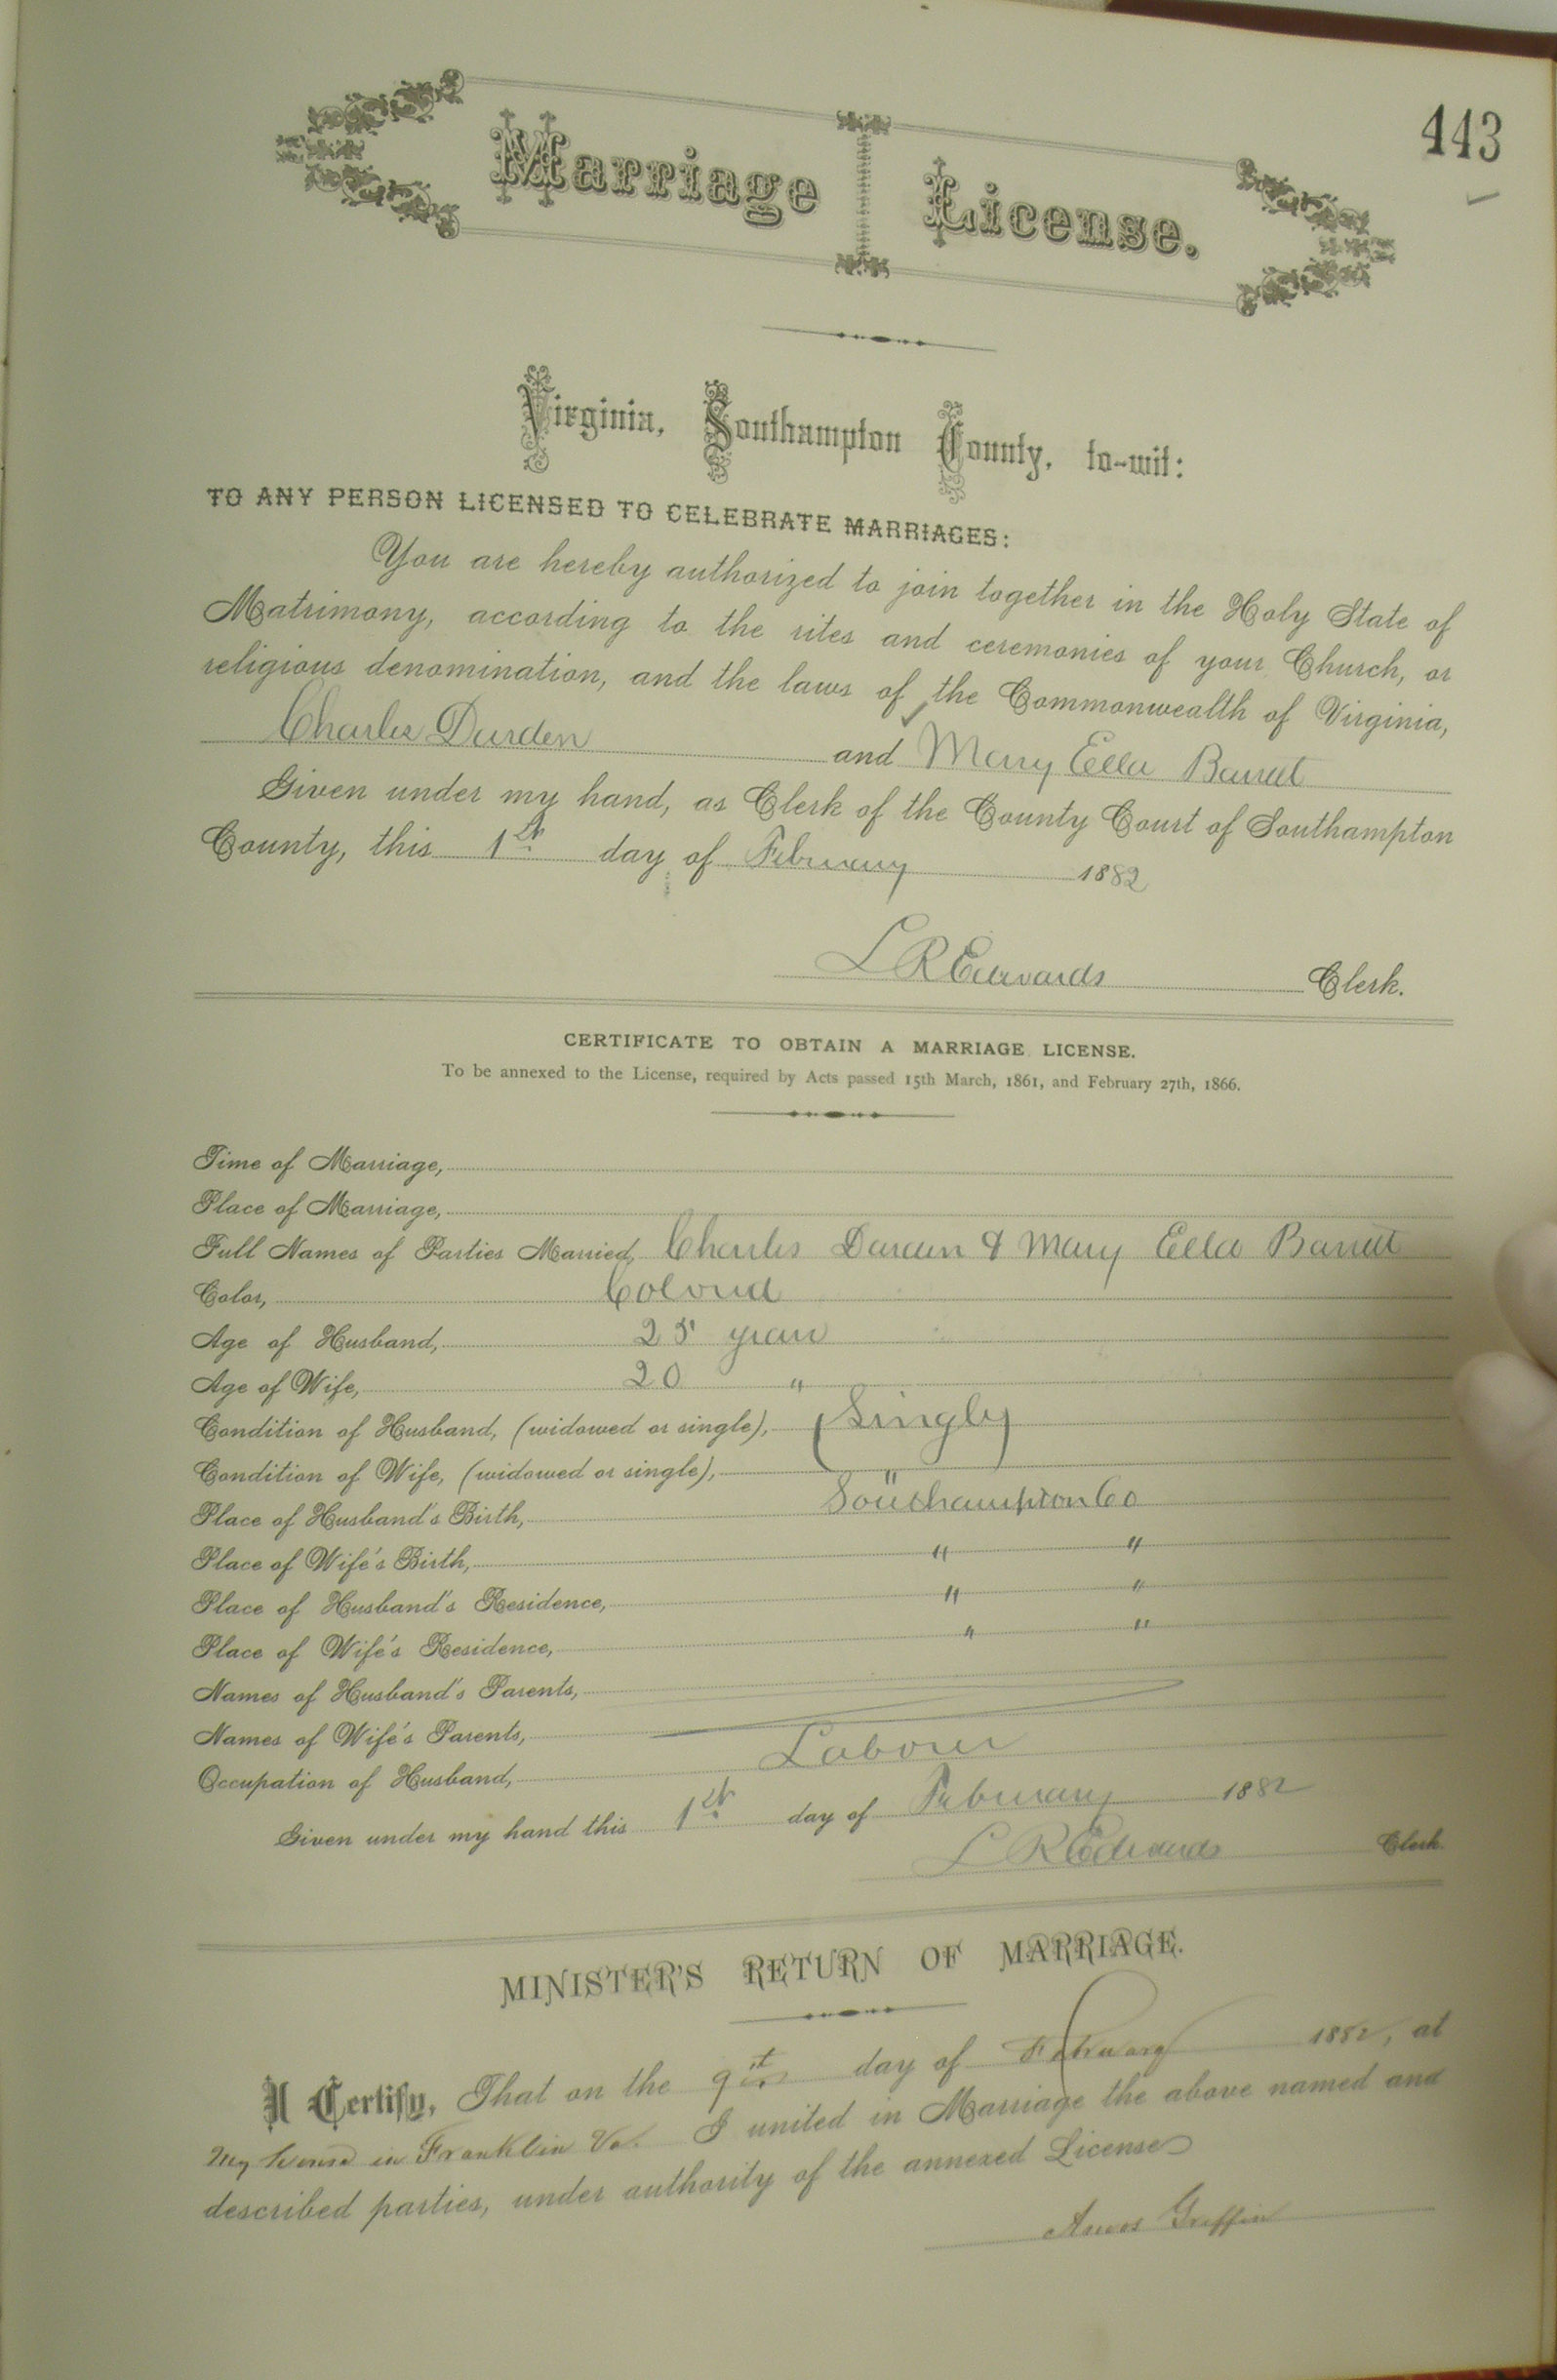 443
Marriage License.
Virginia, Southampton County, to-wit:
TO ANY PERSON LICENSED TO CELEBRATE MARRIAGES:
You are hereby authorized to join together in the Holy State of
Matrimony, according to the rites and ceremonies of your Church, or
religious denomination, and the laws of the Commonwealth of Virginia,
Charles Durden and Mary Ella Barrett
Given under my hand, as Clerk of the County Court of Southampton
County, this 1st day of February 1882
L R Edwards Clerk.
CERTIFICATE TO OBTAIN A MARRIAGE LICENSE.
To be annexed to the License, required by Acts passed 15th March, 1861, and February 27th, 1866.
Time of Marriage,
Place of Marriage,
Full Names of Parties Married, Charles Durden & Mary Ella Barrett
Color, Colored
Age of Husband, 25 years
Age of Wife, 20 "
Condition of Husband, (widowed or single), (Single)
Condition of Wife, (widowed or single), "
Place of Husband's Birth, Southampton Co
Place of Wife's Birth, " "
Place of Husband's Residence, " "
Place of Wife's Residence, " "
Names of Husband's Parents,
Names of Wife's Parents,
Occupation of Husband, Laborer
Given under my hand this 1st day of February 1882
L R Edwards Clerk
MINISTER'S RETURN OF MARRIAGE.
I Certify, That on the 9 day of February 1882, at
My house in Franklin Va. I united in Marriage the above named and
described parties, under authority of the annexed License
Amos Griffin